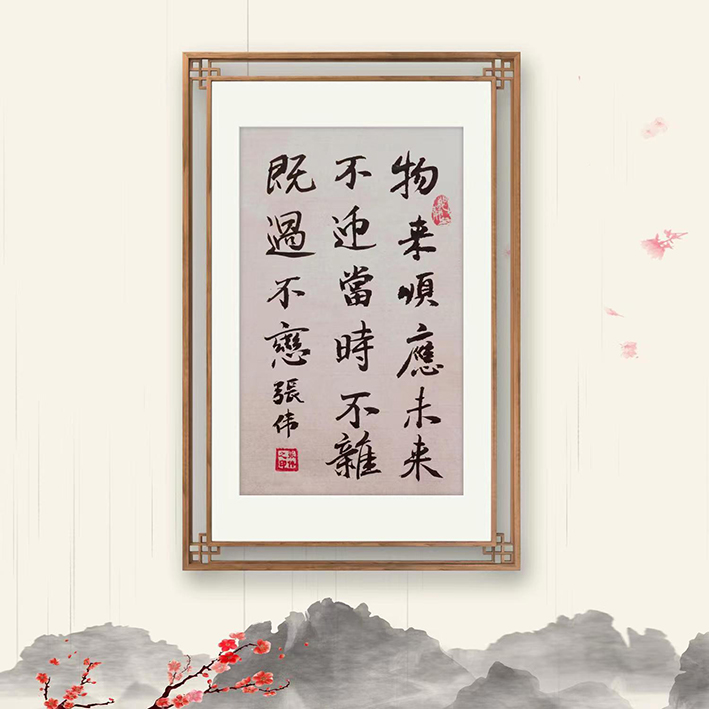 物来順應未来
不迎當時不雜
既過不戀
張伟